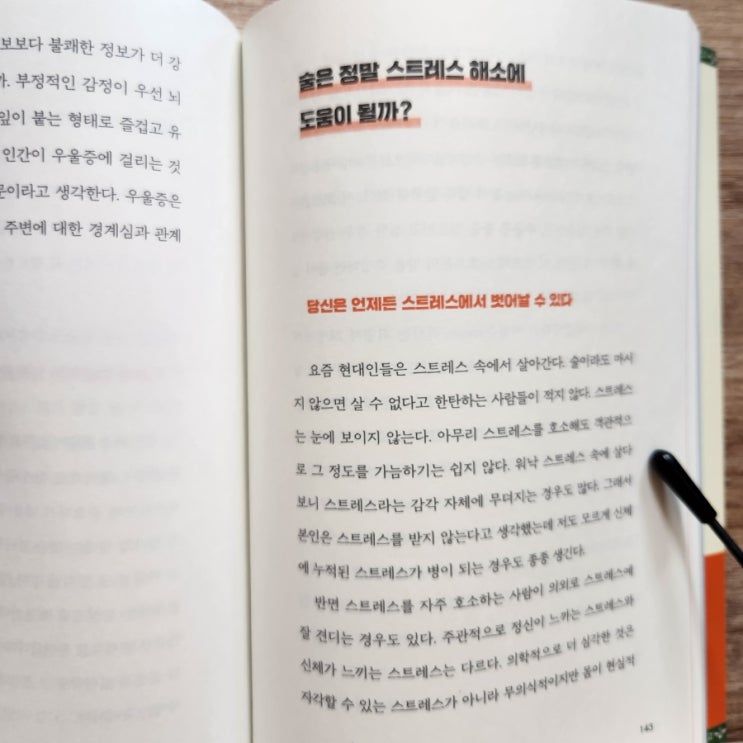 보보다 불쾌한 정보가 더 강
가. 부정적인 감정이 우선 뇌
잎이 붙는 형태로 즐겁고 유
인간이 우울증에 걸리는 것
문이라고 생각한다. 우울증은
주변에 대한 경계심과 관계
술은 정말 스트레스 해소에
도움이 될까?
당신은 언제든 스트레스에서 벗어날 수 있다
요즘 현대인들은 스트레스 속에서 살아간다. 술이라도 마시
지 않으면 살 수 없다고 한탄하는 사람들이 적지 않다. 스트레스
는 눈에 보이지 않는다. 아무리 스트레스를 호소해도 객관적으
로 그 정도를 가늠하기는 쉽지 않다. 워낙 스트레스 속에 살다
보니 스트레스라는 감각 자체에 무뎌지는 경우도 많다. 그래서
본인은 스트레스를 받지 않는다고 생각했는데 저도 모르게 신체
에 누적된 스트레스가 병이 되는 경우도 종종 생긴다.
반면 스트레스를 자주 호소하는 사람이 의외로 스트레스에
잘 견디는 경우도 있다. 주관적으로 정신이 느끼는 스트레스와
신체가 느끼는 스트레스는 다르다. 의학적으로 더 심각한 것은
자각할 수 있는 스트레스가 아니라 무의식적이지만 몸이 현실적